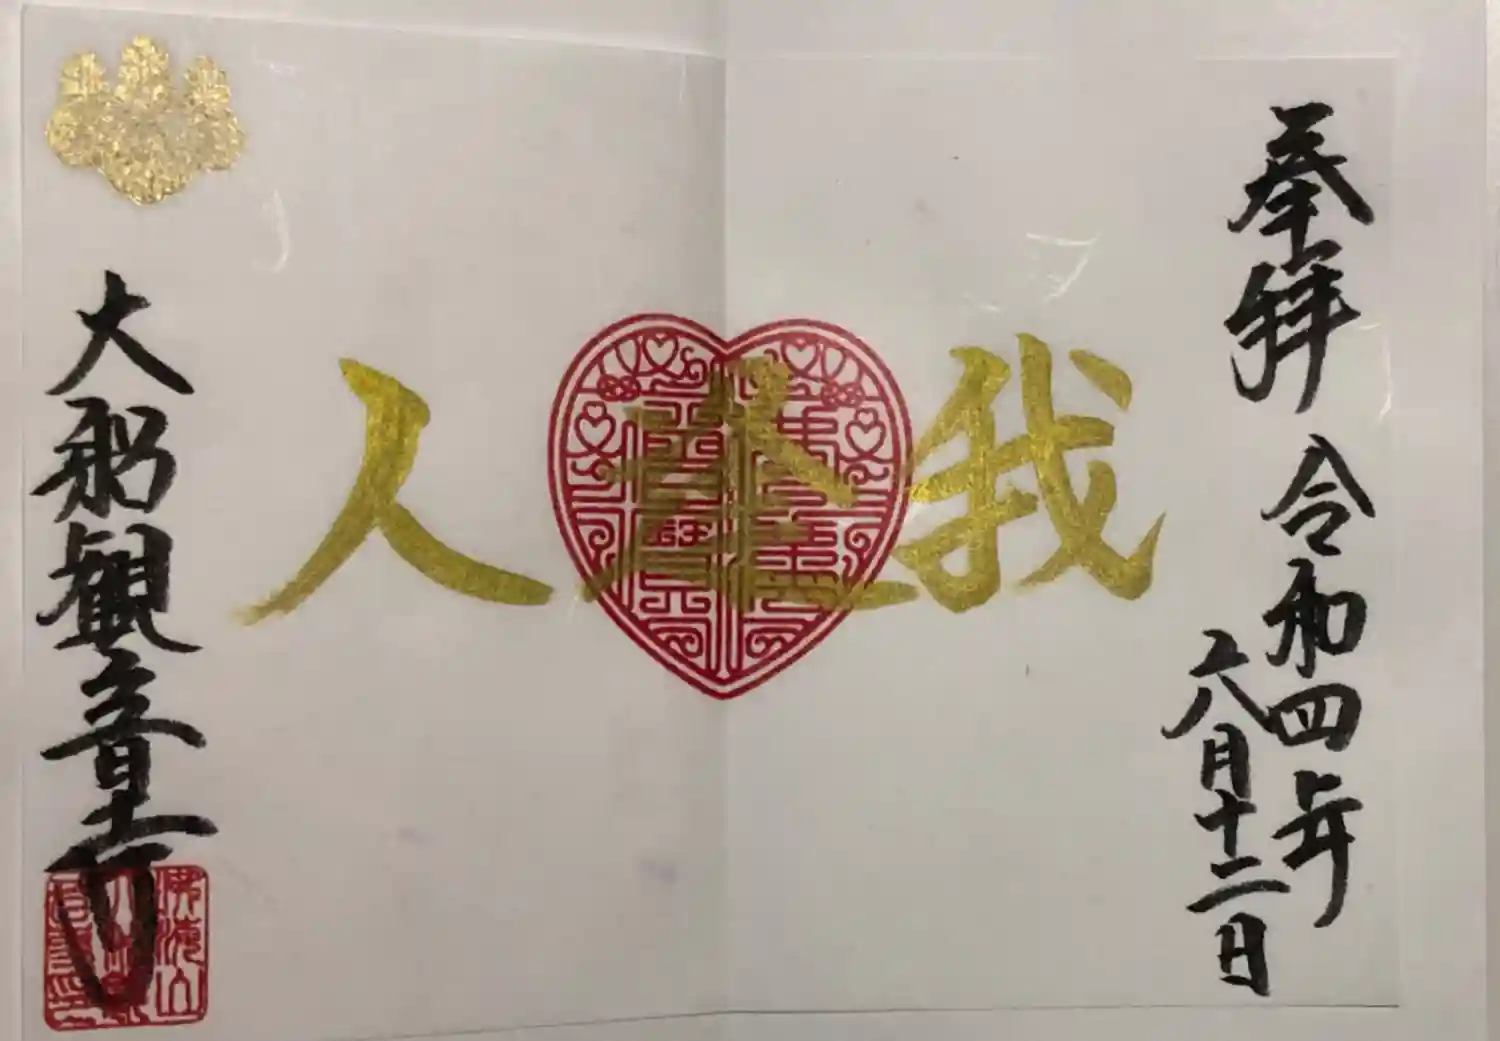 奉拝 令和四年
六月十二日
我逢人
大船観音寺
佛海山